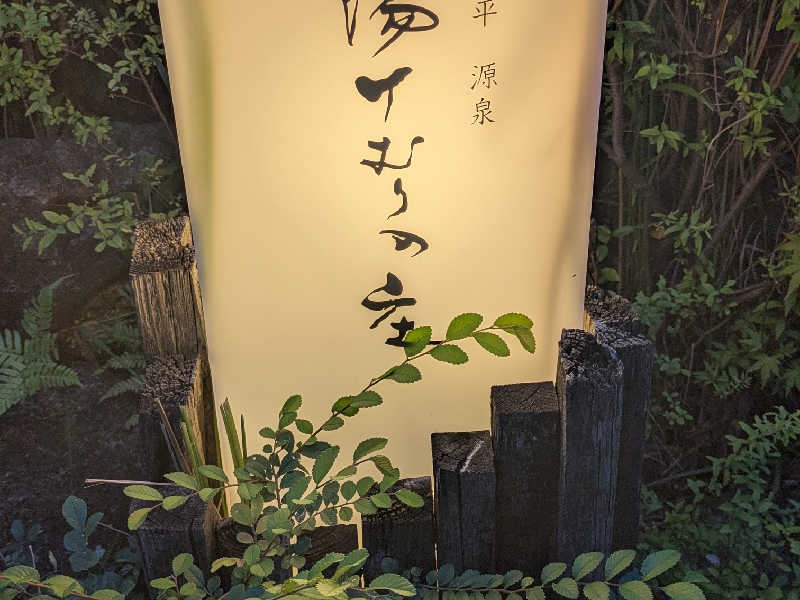 平 源泉
湯けむりの庄